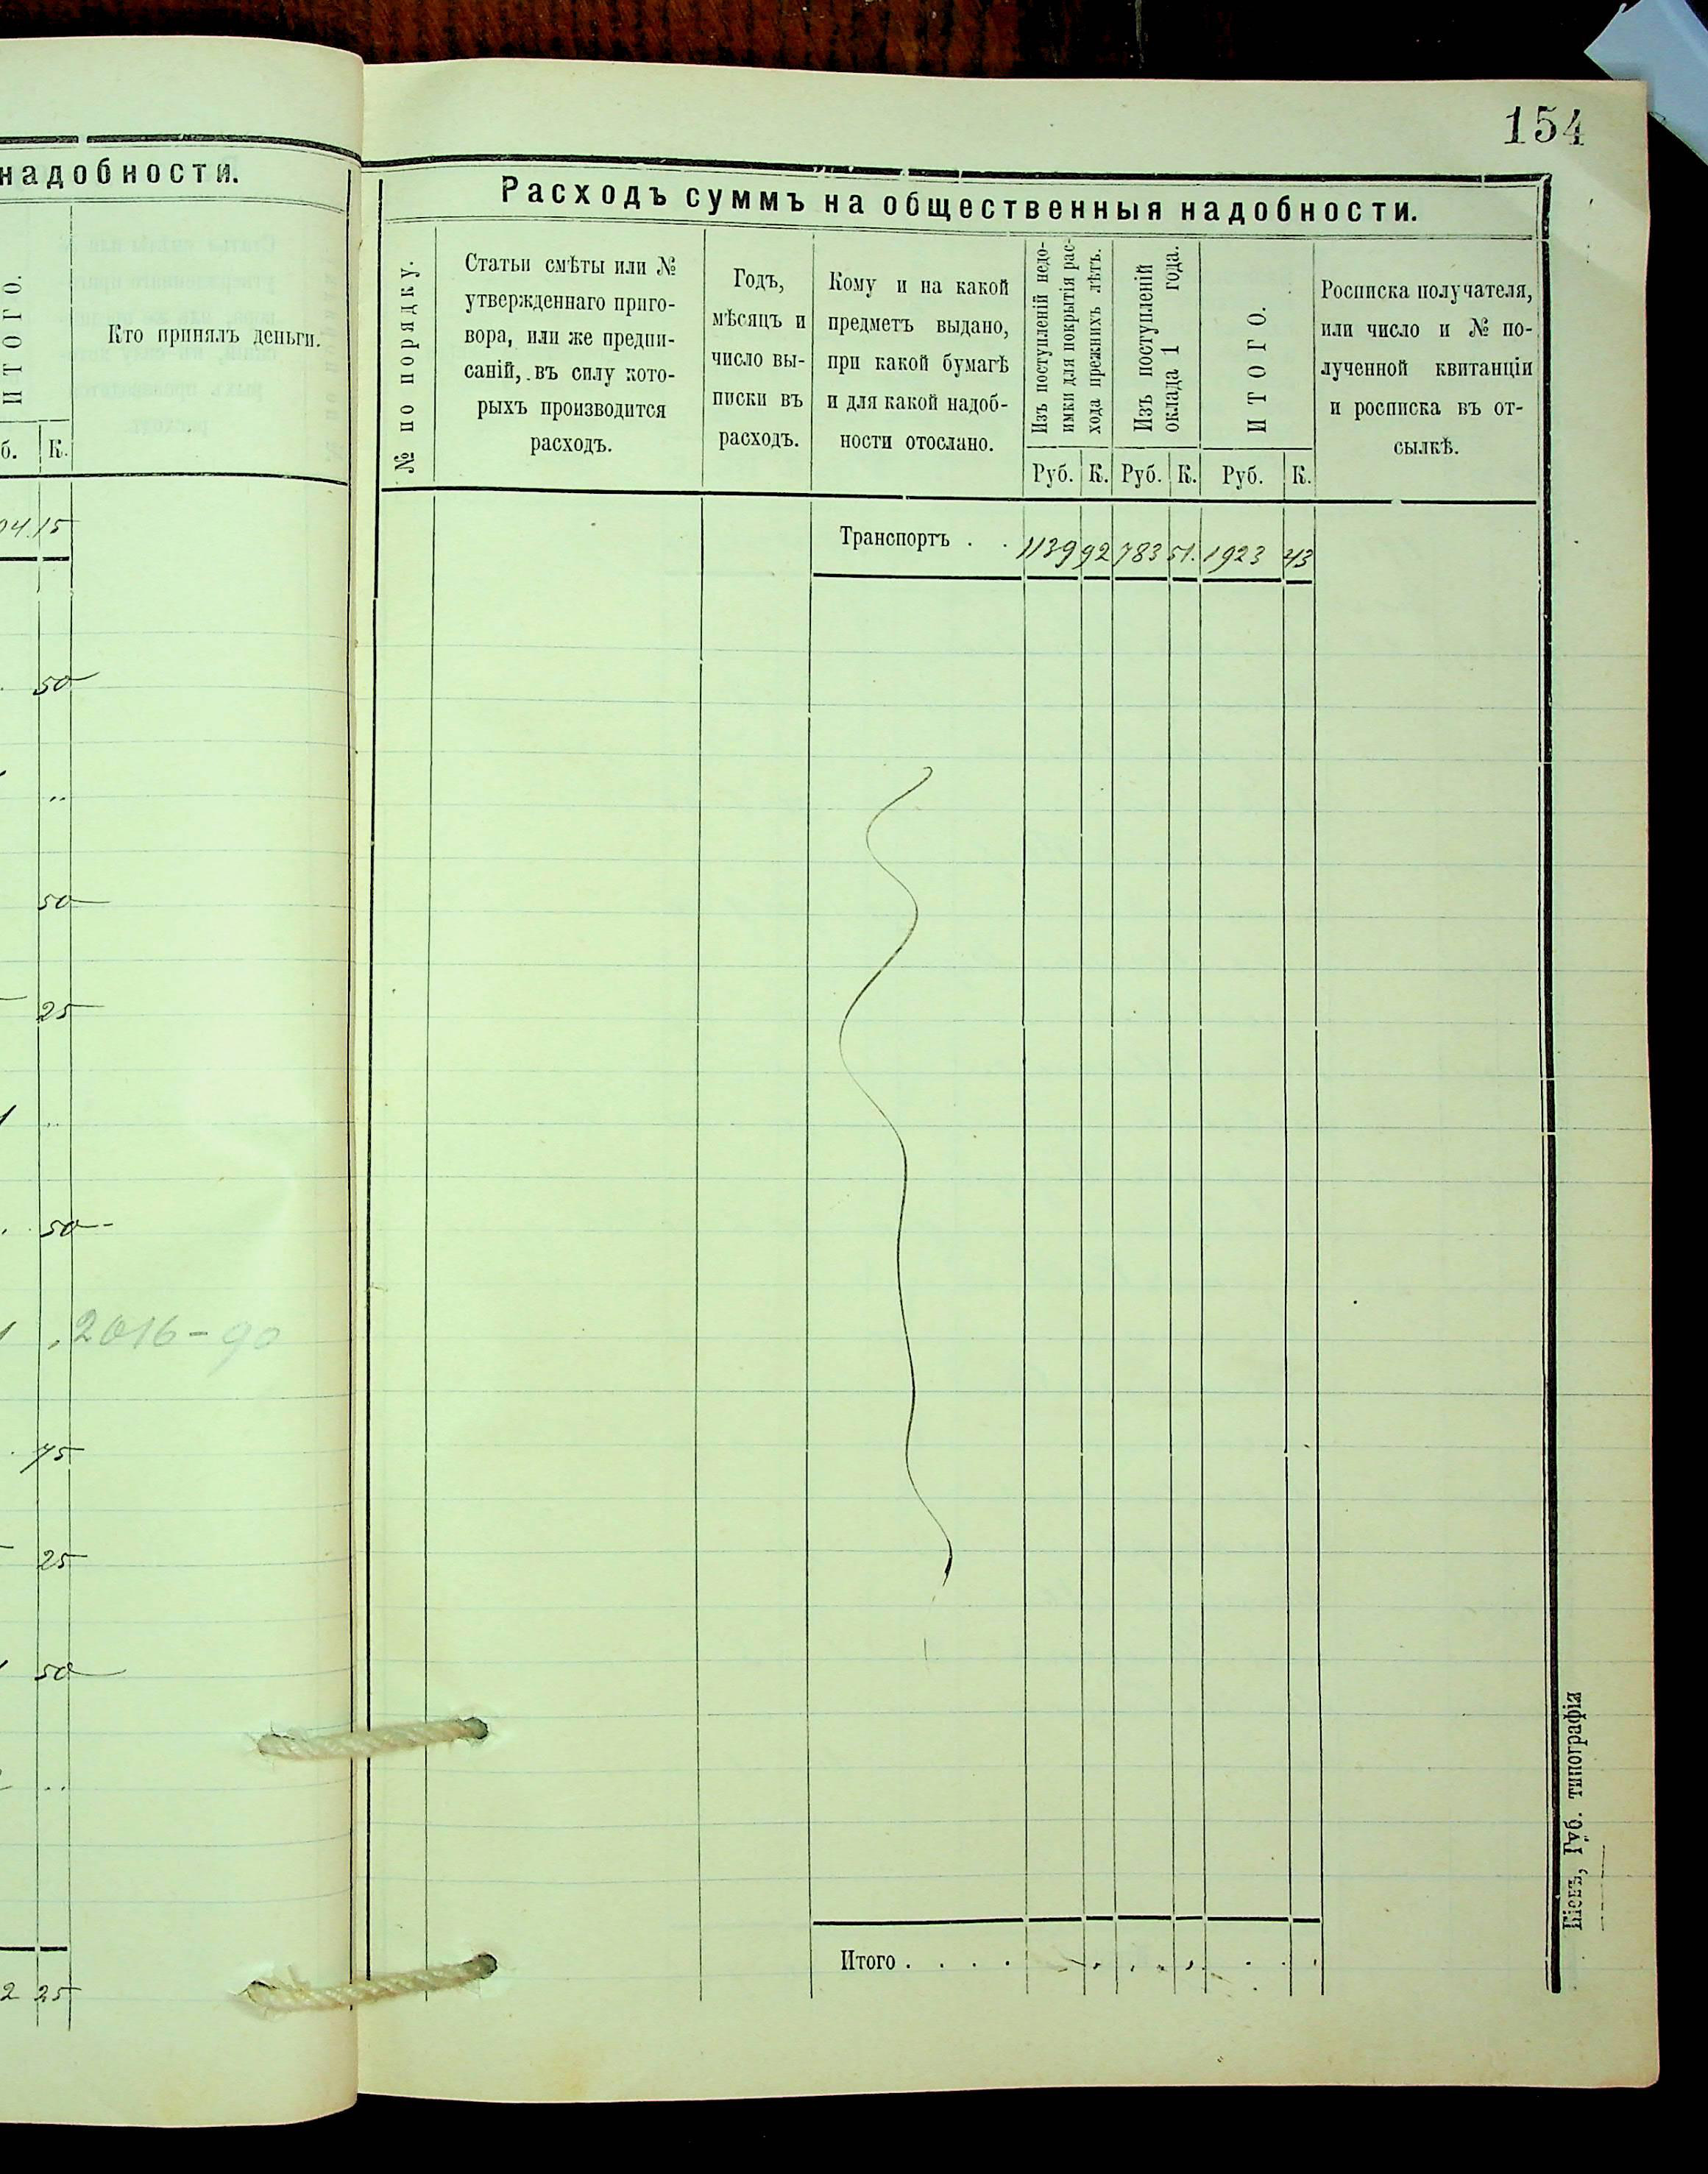 154
надобности.
ИТОГО.
Кто принялъ деньги.
б. К.
04 15
50
50
25
50
2016-90
75
25
50
2 25
Расходъ суммъ на общественныя надобности.
№ по порядку.
Статьи смѣты или №
утвержденнаго приго-
вора, или же предпи-
саній, въ силу кото-
рыхъ производится
расходъ.
Годъ,
мѣсяцъ и
число вы-
писки въ
расходъ.
Кому и на какой
предметъ выдано,
при какой бумагѣ
и для какой надоб-
ности отослано.
Изъ поступленій недо-
имки для покрытія рас-
хода прежнихъ лѣтъ.
Изъ поступленій
оклада 1 года.
ИТОГО.
Росписка получателя,
или число и № по-
лученной квитанціи
и росписка въ от-
сылкѣ.
Руб. К. Руб. К. Руб. К.
Транспортъ . . 1139 92 783 51. 1923 43
Итого . . . .
Кіевъ, Губ. типографія